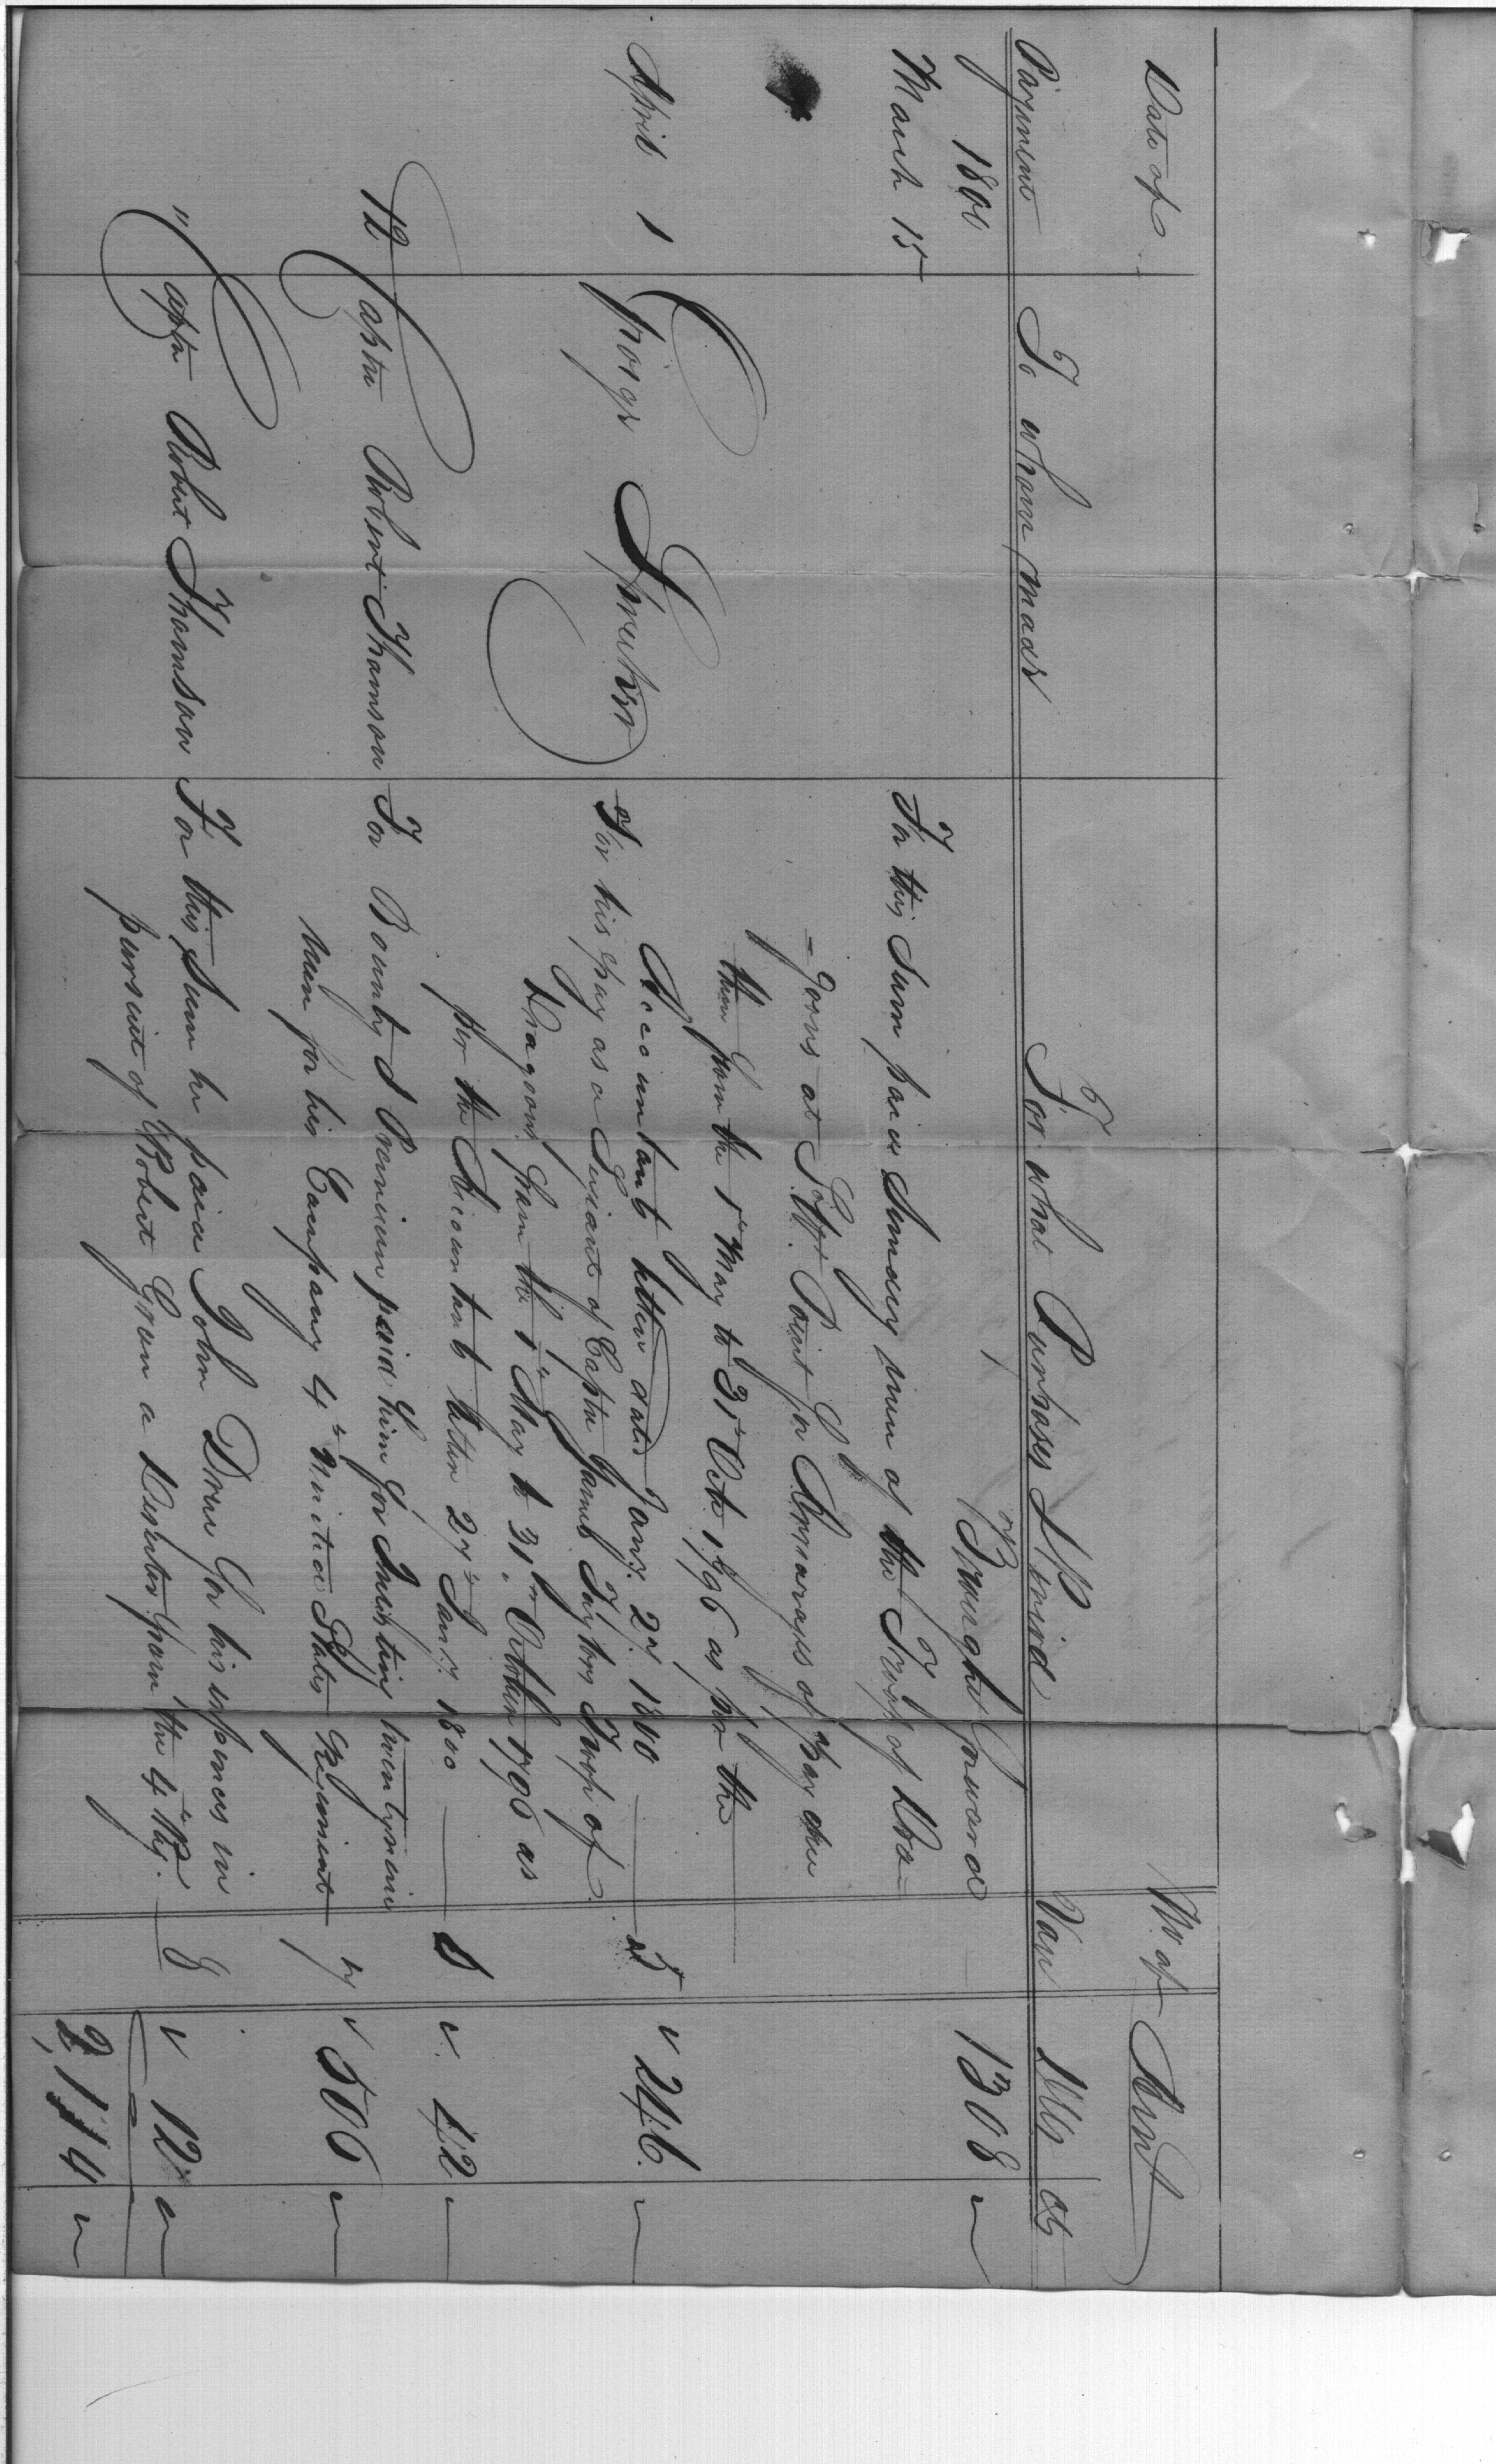 Date of
No. of Amt
Payment To whom made For what Purposes Paid Vou Dlls Cts
1800 Brought forward 1308 "
March 15 For this Sum paid Sundry men of the Troop of Dra=
=goons at Point for Arrearages of Pay due
them from the 1st May to 31st Octo 1796 as per the
Accountants letter dated Jany. 27. 1800 5 246. "
April 1 George For his pay as a Serjeant of Captn James Taylors Troop of
Dragoons from the 1st May to 31st October 1796 as
per the Accountants letter 27th Jany. 1800 6 42 "
12 Captn Robert Thomson For Bounty & Premium paid him for Inlisting twentynine
Men for his Company 4th United States Regiment 7 506 "
" Captn Robert Thomson For this Sum he paid John Drew for his expences in
pursuit of Robert Green a Deserter from the 4th Regt. 8 12 "
2,114 "